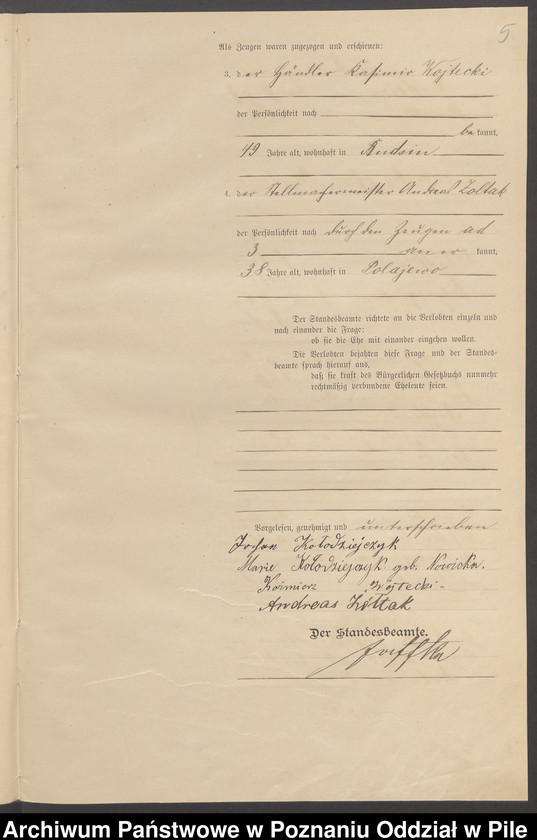 5
Als Zeugen waren zugezogen und erschienen:
3. der Händler Kasimir Wojtecki
der Persönlichkeit nach
be kannt,
49 Jahre alt, wohnhaft in Rudsin
4. der Stellmachermeister Andreas Zoltak
der Persönlichkeit nach durch den Zeugen ad
3 aner kannt,
38 Jahre alt, wohnhaft in Polajewo
Der Standesbeamte richtete an die Verlobten einzeln und
nach einander die Frage:
ob sie die Ehe mit einander eingehen wollen.
Die Verlobten bejahten diese Frage und der Standes-
beamte sprach hierauf aus,
daß sie kraft des Bürgerlichen Gesetzbuchs nunmehr
rechtmäßig verbundene Eheleute seien.
Vorgelesen, genehmigt und unterschrieben
Kołodziejczyk
Marie Kołodziejczyk geb. Nowicka.
Kaźmierz Wojtecki
Andreas Żółtak
Der Standesbeamte.
Archiwum Państwowe w Poznaniu Oddział w Pile